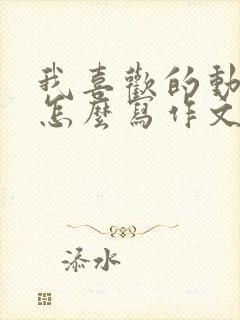 我喜歡的動
怎麼寫作文
添水